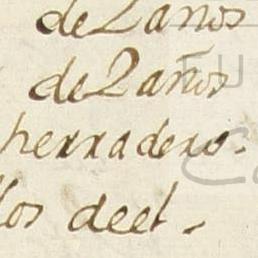 de 2 años
de 2 años
herradero.
los deel.